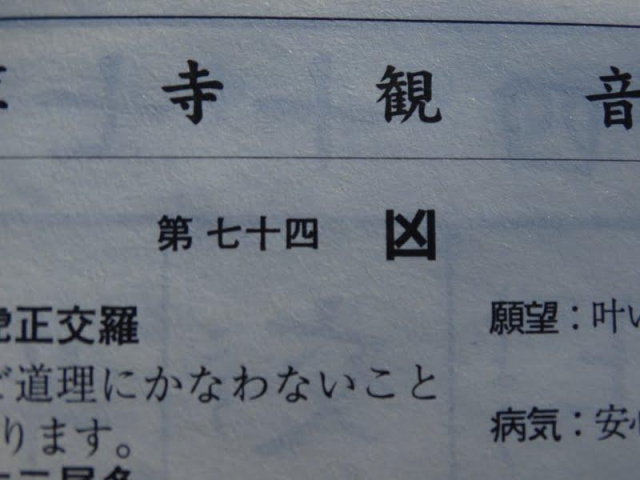 寺観音
第七十四 凶
正交羅
道理にかなわないこと
ります。
願望：叶い
病気：安心